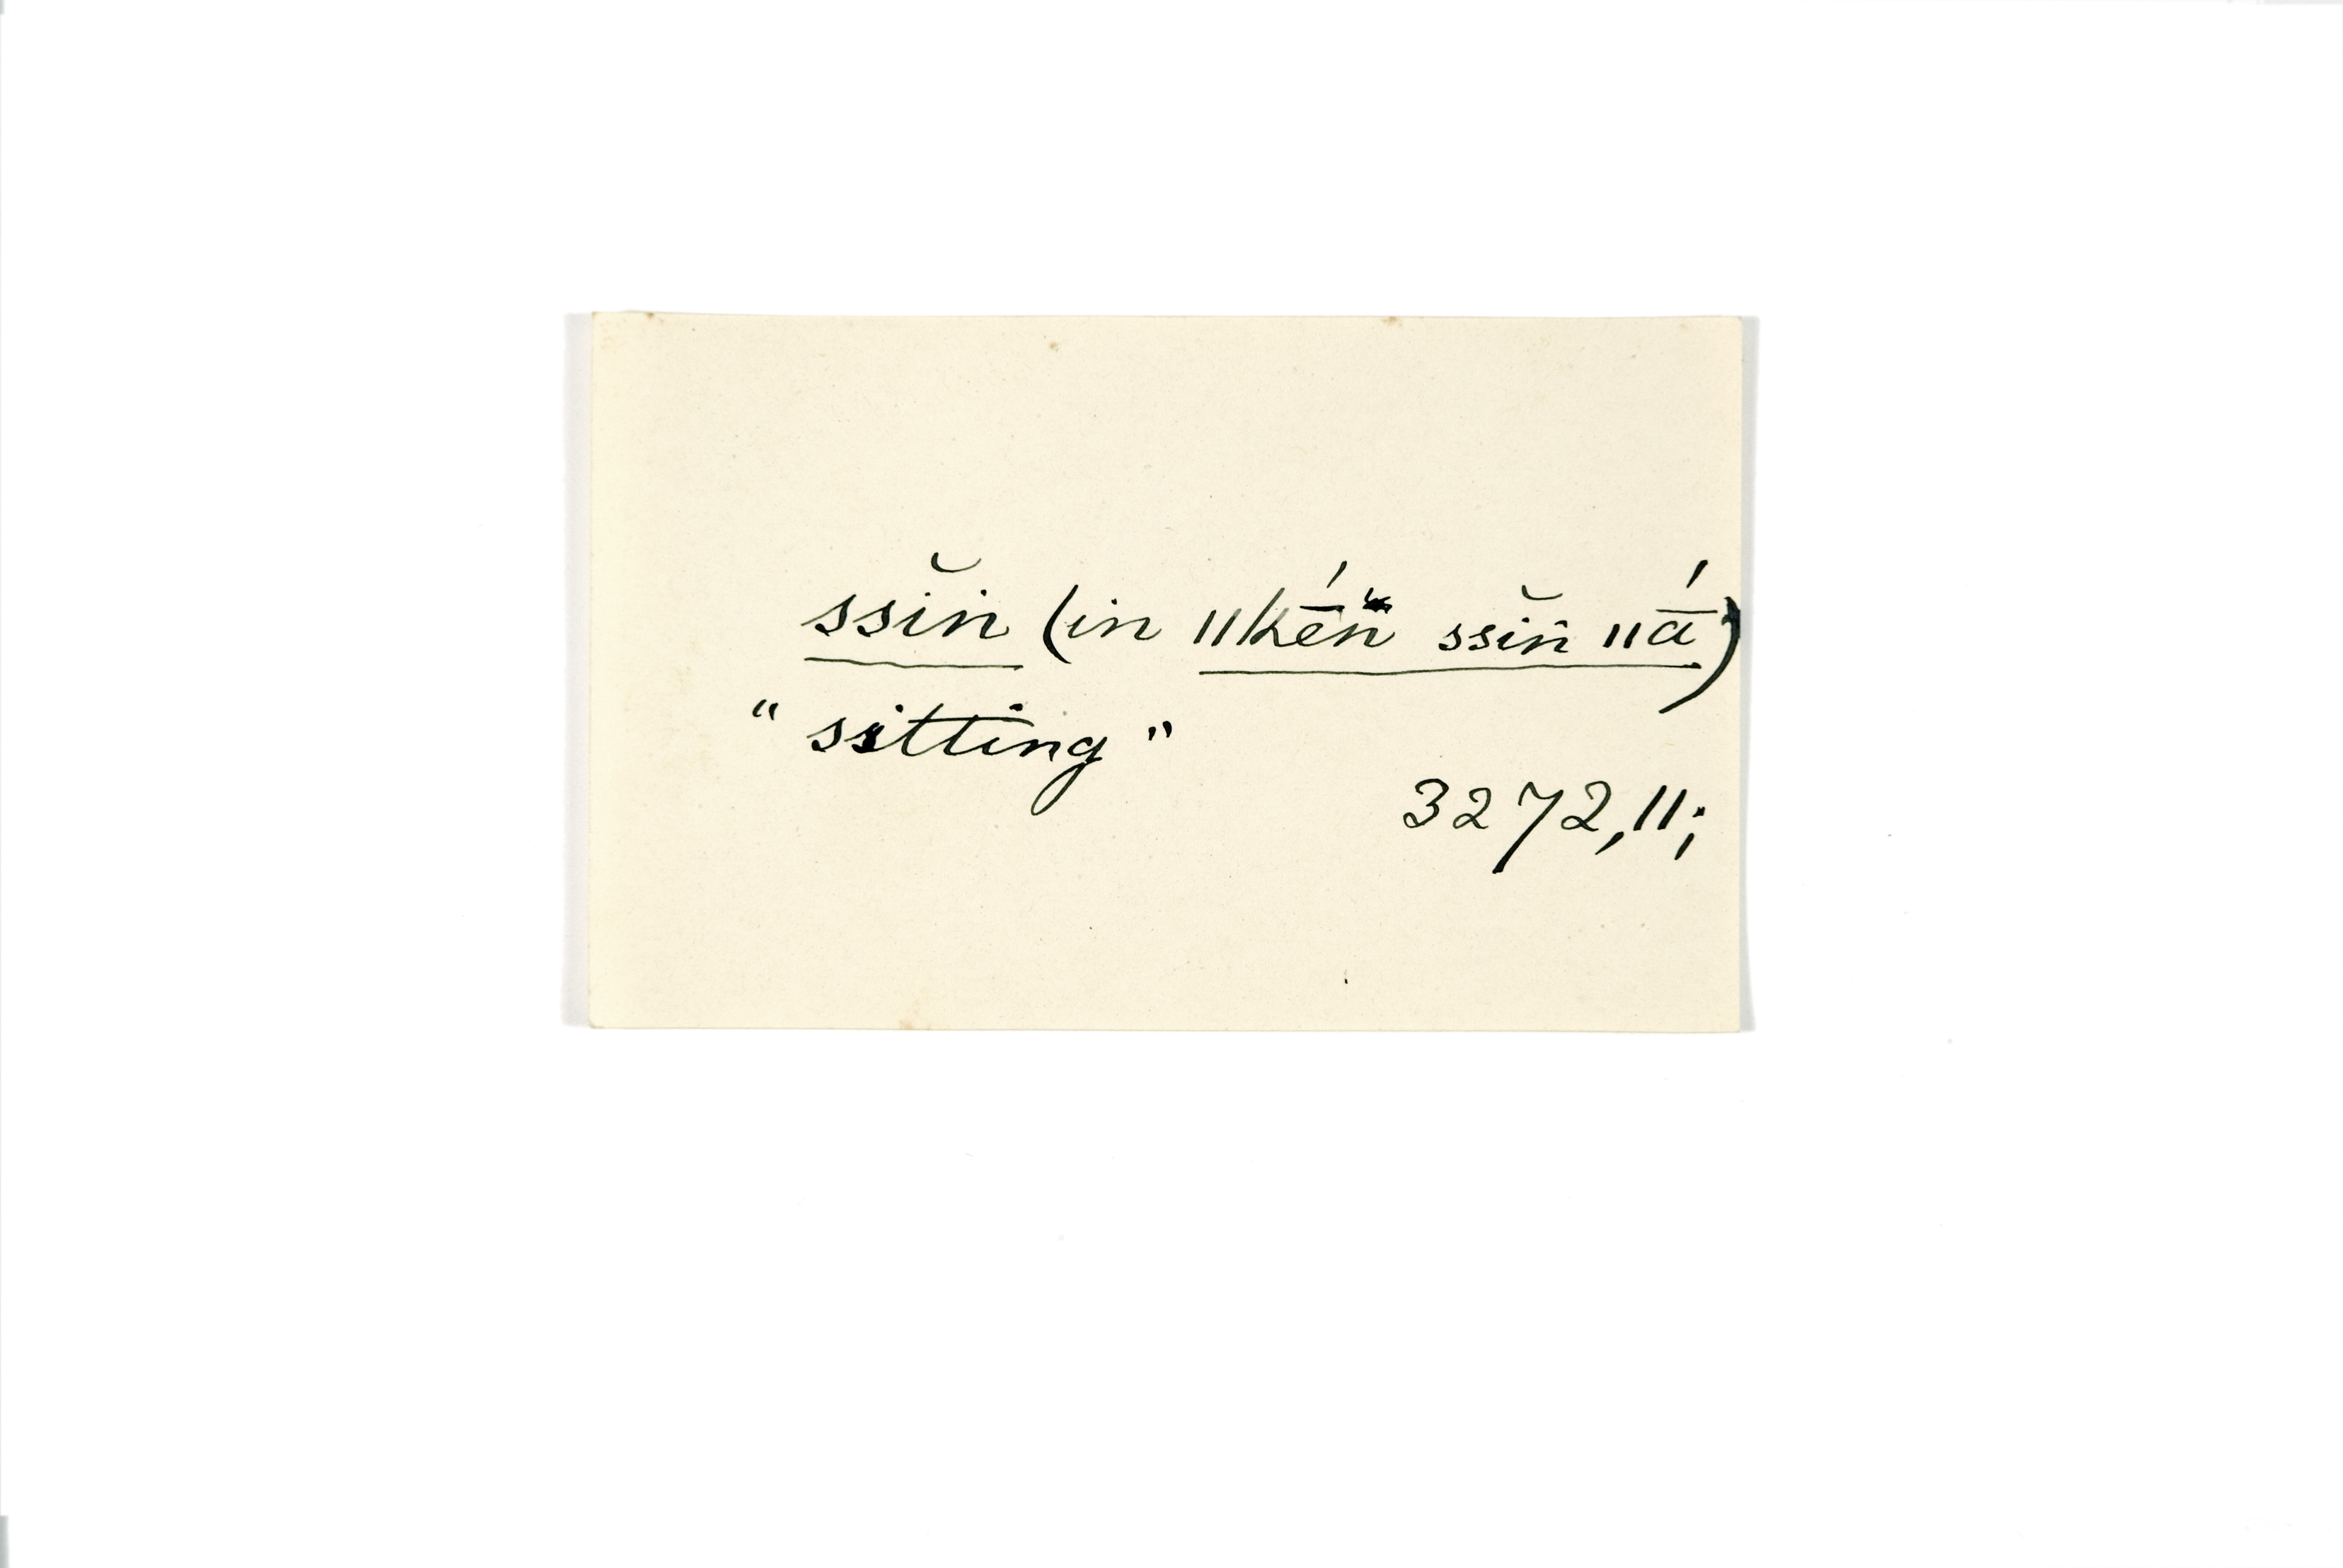 ssĭṅ (in ǁkḗn̈ ssĭn̈ ǁā́)
" sitting "
3272,11;